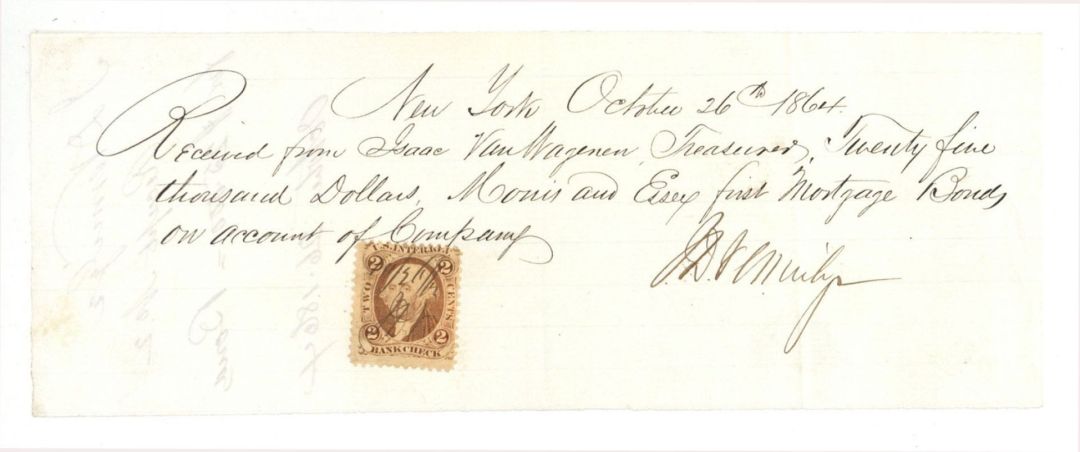 New York October 26th 1864.
Received from Isaac Van Wagenen, Treasurer, Twenty five
thousand Dollars, Morris and Essex first Mortgage Bonds
on account of Company
U.S. INTER.REV.
2 2
TWO CENTS
2 2
BANK CHECK